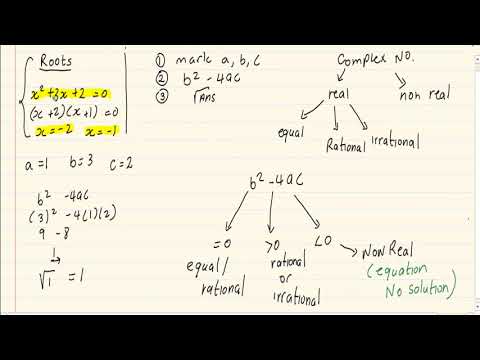 Roots
x² + 3x + 2 = 0
(x + 2)(x + 1) = 0
x = -2 x = -1
a = 1 b = 3 c = 2
b² - 4ac
(3)² - 4(1)(2)
9 - 8
1
√1 = 1
① mark a, b, c
② b² - 4ac
③ √Ans
Complex No.
real
non real
equal
Rational
Irrational
b² - 4ac
= 0
>0
<0
equal/
rational
rational
or
irrational
Non Real
(equation
No solution)